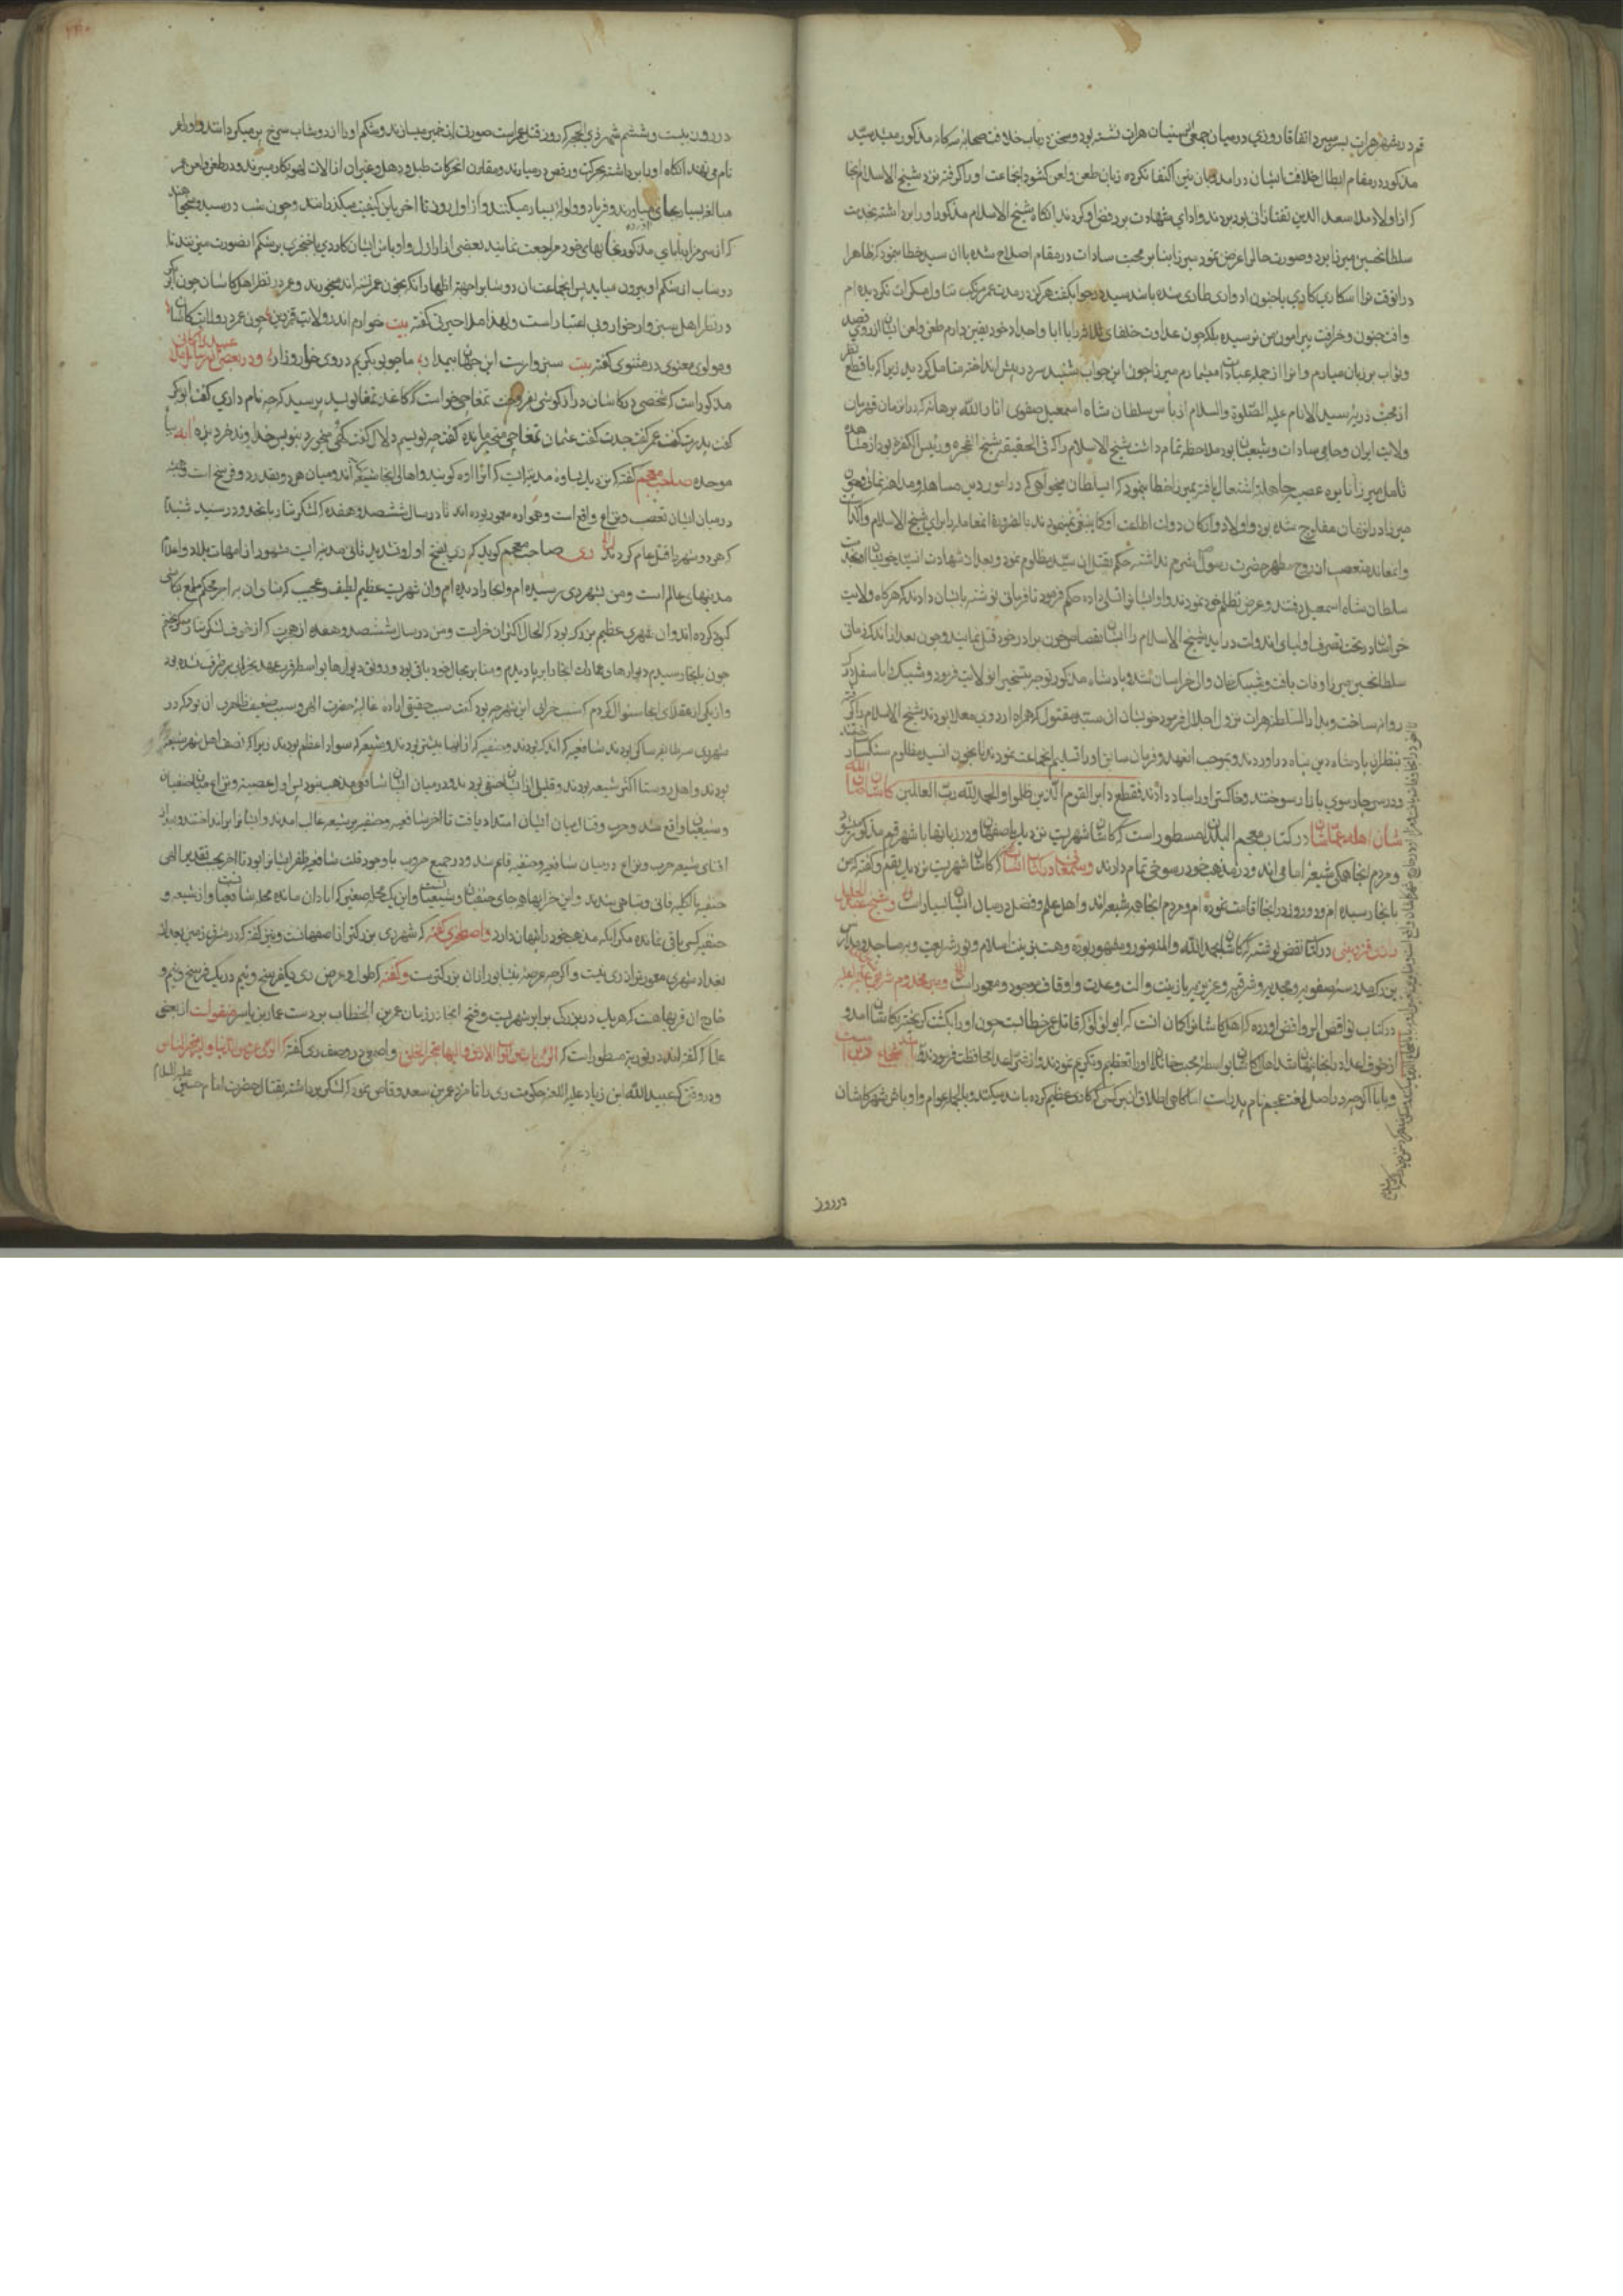 قم در شهر هرات بسر میبرد اتفاقا روزی در میان جمعی از سنیان هرات نشسته بود و سخن در باب خلافت صحابه سه کانه مذکور میشد سید
مذکور در مقام ابطال خلافت ایشان درآمد و بان نیز اکتفا نکرده زبان طعن و لعن کشود انجماعت او را کرفته نزد شیخ الاسلام انجا
که از اولاد ملا سعد الدین تفتازانی بود بردند و ادای شهادت بر رفض او کردند انکاه شیخ الاسلام مذکور او را برداشته بخدمت
سلطانحسین میرزا برد و صورت حال را عرض نمود میرزا بنا بر محبت سادات در مقام اصلاح شده با ان سید خطاب نمود که ظاهرا
در انوقت ترا اسکاری یا جنون ادواری طاری شده باشد سید در جواب گفت هرکز در مدت عمر مرتکب تناول مسکرات نکردیده ام
و افت جنون و خرافت پیرامون من نرسیده بلکه چون عداوت خلفای ثلاثه را با ابا و اجداد خود یقین دارم طعن و لعن ایشان از روی قصد
و ثواب بر زبان میارم و انرا از جمله عبادات میشمارم میرزا چون این جواب شنید سر در پیش انداخته متامل کردید زیرا که با قطع نظر
از محبت ذریه سید الانام علیه الصلوة والسلام از باس سلطان شاه اسمعیل صفوی انار الله برهانه که در انزمان قهرمان
ولایت ایران و حامی سادات و شیعیان بود ملاحظه تمام داشت شیخ الاسلام را که فی الحقیقه شیخ الفجره و رئیس الکفره بود از مشاهده
تامل میرزا نایره عصبیت جاهلیه اشتعال یافته بمیرزا خطاب نمود که ای سلطان میخواهی که در امور دین مساهله و مداهنه نمائی و چون
میرزا در انزمان مفلوج شده بود و اولاد و ارکان دولت اطاعت او کما ینبغی نمینمودند بالضرورة انمعامله را برای شیخ الاسلام واکذاشت
و انمعاند متعصب از روح مطهر حضرت رسول شرم نداشته حکم بقتل ان سید مظلوم نمود و بعد از شهادت انسید خویشان او بخدمت
سلطان شاه اسمعیل رفتند و عرض تظلم خود نمودند و او ایشانرا تسلی داده حکم فرمود تا فرمانی نوشته بایشان دادند که هرکاه ولایت
خراسان در تحت تصرف اولیای اندولت دراید شیخ الاسلام را ایشان بقصاص خون برادر خود قتل نمایند و چون بعد از اندک زمانی
سلطانحسین میرزا وفات یافت و شیبک خان والی خراسان شد و پادشاه مذکور توجه بتسخیر انولایت فرمود و شیبک را باسفل درک
روانه ساخت و بدار السلطنه هرات نزول اجلال فرمود خویشان ان سید مقتول که همراه اردوی معلا بودند شیخ الاسلام را کرفته
بنظر ان پادشاه دین پناه دراوردند و بموجب انعهد و فرمان سابق او را تسلیم انجماعت نمودند تا بخون انسید مظلوم سنکسار ساختند
و در سر چارسوی بازار سوختند و خاکستر او را بباد دادند فقطع دابر القوم الذین ظلموا والحمد لله رب العالمین کاشان صان الله
شان اهله عما شان در کتاب معجم البلدان مسطور است که کاشان شهریست نزدیک باصفهان و در زبانها با شهر قم مذکور میشود
و مردم انجا همکی شیعه امامی اند و در مذهب خود رسوخی تمام دارند و سمعانی در کتاب انساب که کاشان شهریست نزدیک بقم و کفته که من
بانجا رسیده ام و دو روز در انجا اقامت نموده ام و مردم انجا همه شیعه اند و اهل علم و فضل در میان ایشان بسیار است و شیخ عبد الجلیل
رازی قزوینی در کتاب نقض نوشته که کاشان بحمد الله والمنه منور و مشهور بوده و هست بزینت اسلام و نور شریعت و بر مساجد و مدارس
بزرک چون مدرسه صفویه و مجدیه و شرفیه و عزیزیه با زینت و آلت و عدت و اوقاف موجود و معمور است و میر مخدوم شریفی
در کتاب نواقض الروافض اورده که اهل کاشان را کمان انست که ابو لؤلؤ که قاتل عمر خطابست چون او را بکشت کریخته بکاشان امد و
از خوف اعدا در انجا پنهان شد اهل کاشان بواسطه محبت خاندان او را تعظیم و تکریم نمودند و از ضرر اعدا محافظت فرمودند
و بابا اکرچه در اصل لغت عجم نام پدر است اما کاهی اطلاق ان بر کسی که کاری عظیم کرده باشد میکنند و بالجمله عوام و اوباش شهر کاشان
در روز
در درون بیست و ششم شهر ذی الحجه که روز قتل عمر است صورت از خمیر میسازند و شکم او را از دوشاب سرخ پر میکردانند و او را عمر
نام می نهند انکاه او را برداشته بحرکت و رقص در میارند و مقارن انحرکات طبل و دهل و غیر ان از آلات لهو بکار میبرند و در طعن و لعن عمر
مبالغه بسیار بجای میاورند و فریاد و ولوله بسیار میکنند و از اول روز تا اخر باین کیفیت میکذرانند و چون شب در رسید و میخواهند
که از سر مزار بابای مذکور بخانهای خود مراجعت نمایند بعضی از اراذل و اوباش ایشان کاردی یا خنجری بر شکم انصورت میزنند تا
دوشاب از شکم او بیرون میاید پس انجماعت ان دوشاب را جهت اظهار انکه بخون عمر تشنه اند میخورند و عمر در نظر اهل کاشان چون ابو بکر
در نظر اهل سبزوار خوار و بی اعتبار است و لهذا ملا حیرتی کفته بیت خوارم اندر ولایت قزوین چون عمر در ولایت کاشان
و مولوی معنوی در مثنوی کفته بیت سبزوار است این جهان بیمدار ما چو بوبکریم در وی خوار و زار و در بعضی از رسایل عبید زاکانی
مذکور است که شخصی در کاشان دراز کوشی بفروخت تمغاچی خواست که کاغذ تمغا نویسد پرسید که چه نام داری کفت ابو بکر
کفت پدرت کفت عمر کفت جدت کفت عثمان تمغاچی متحیر مانده کفت چه نویسم دلال کفت میخورد بنویس خداوند خر دیزه آبه بباء
موحده صاحب معجم کفته که نزدیک بساوه مدینه ایست که انرا اوه کویند و اهالی انجا شیعه اند و میان هر دو بقدر دو فرسخ است و همیشه
در میان ایشان تعصب و نزاع واقع است و همواره معمور بوده اند تا در سال ششصد و هفده که لشکر تتار بانحدود رسید شنیدم
که هر دو شهر را قتل عام کردند ری صاحب معجم کوید که ری بفتح اول و تشدید ثانی مدینه ایست مشهور از امهات بلاد و اعلام
مدینهای عالم است و من بشهر ری رسیده ام و انجا را دیده ام و ان شهریست عظیم لطیف و عجیب که بنای ان به اجر محکم ملمع بکاشی
کبود کرده اند و ان شهری عظیم بزرک بود که الحال اکثر ان خراب است و من در سال ششصد و هفده از هجرت که از خوف لشکر تتار میکریختم
چون بانجا رسیدم دیوارها و عمارات انجا را بر پا دیدم و منابر بحال خود باقی بود و رونق دیوارها بواسطه قرب عهد بخرابی برطرف نشده بود
و از یکی از عقلای انجا سئوال کردم که سبب خرابی این شهر چه بود کفت سبب حقیقی اراده غالبه حضرت الهی و سبب ضعیف ظاهری ان بود که در
شهر ری سه طایفه ساکن بودند شافعیه که اندک بودند و حنفیه که از ایشان بیشتر بودند و شیعه که سواد اعظم بودند زیرا که نصف اهل شهر شیعه
بودند و اهل روستا اکثر شیعه بودند و قلیلی از ایشان حنفی بودند و در میان ایشان شافعی مذهب نبود پس اول عصبیت و نزاع میان حنفیان
و شیعیان واقع شد و حرب و قتال میان ایشان امتداد یافت تا اخر شافعیه و حنفیه بر شیعه غالب امدند و ایشانرا برانداختند و بعد از
افنای شیعه حرب و نزاع در میان شافعیه و حنفیه قایم شد و در جمیع حروب با وجود قلت شافعیه ظفر ایشانرا بود تا اخر بحسب تقدیر الهی
حنفیه بالکلیه فانی و متناهی شدند و این خرابها همه جای حنفیان و شیعیانست و این یک محله صغیر که ابادان مانده محله شافعیانست و از شیعه و
حنفیه کسی باقی نمانده مکر انکه مذهب خود را پنهان دارد و اصطخری کفته که شهر ری بزرکتر از اصفهانست و نیز کفته که در مشرق زمین بعد از
بغداد شهری معمورتر از ری نیست و اکرچه عرصه نیشابور از ان بزرکتر است و کفته که طول و عرض ری یکفرسخ و نیم در یک فرسخ و نیم و
خارج ان قریهاست که هریک در بزرکی برابر شهریست و فتح انجا در زمان عمر بن الخطاب بر دست عمار بن یاسر و منقولست از بعضی
علما که کفته اند در توریة مسطور است که الری باب من ابواب الارض و الیها متجر الخلق و اصمعی در وصف ری کفته که الری عروس الدنیا و الیها متجر الناس
و در وقتی که عبید الله ابن زیاد علیه اللعنه حکومت ری را نامزد عمر بن سعد وقاص نمود که لشکر برداشته بقتال حضرت امام حسین علیه السلام